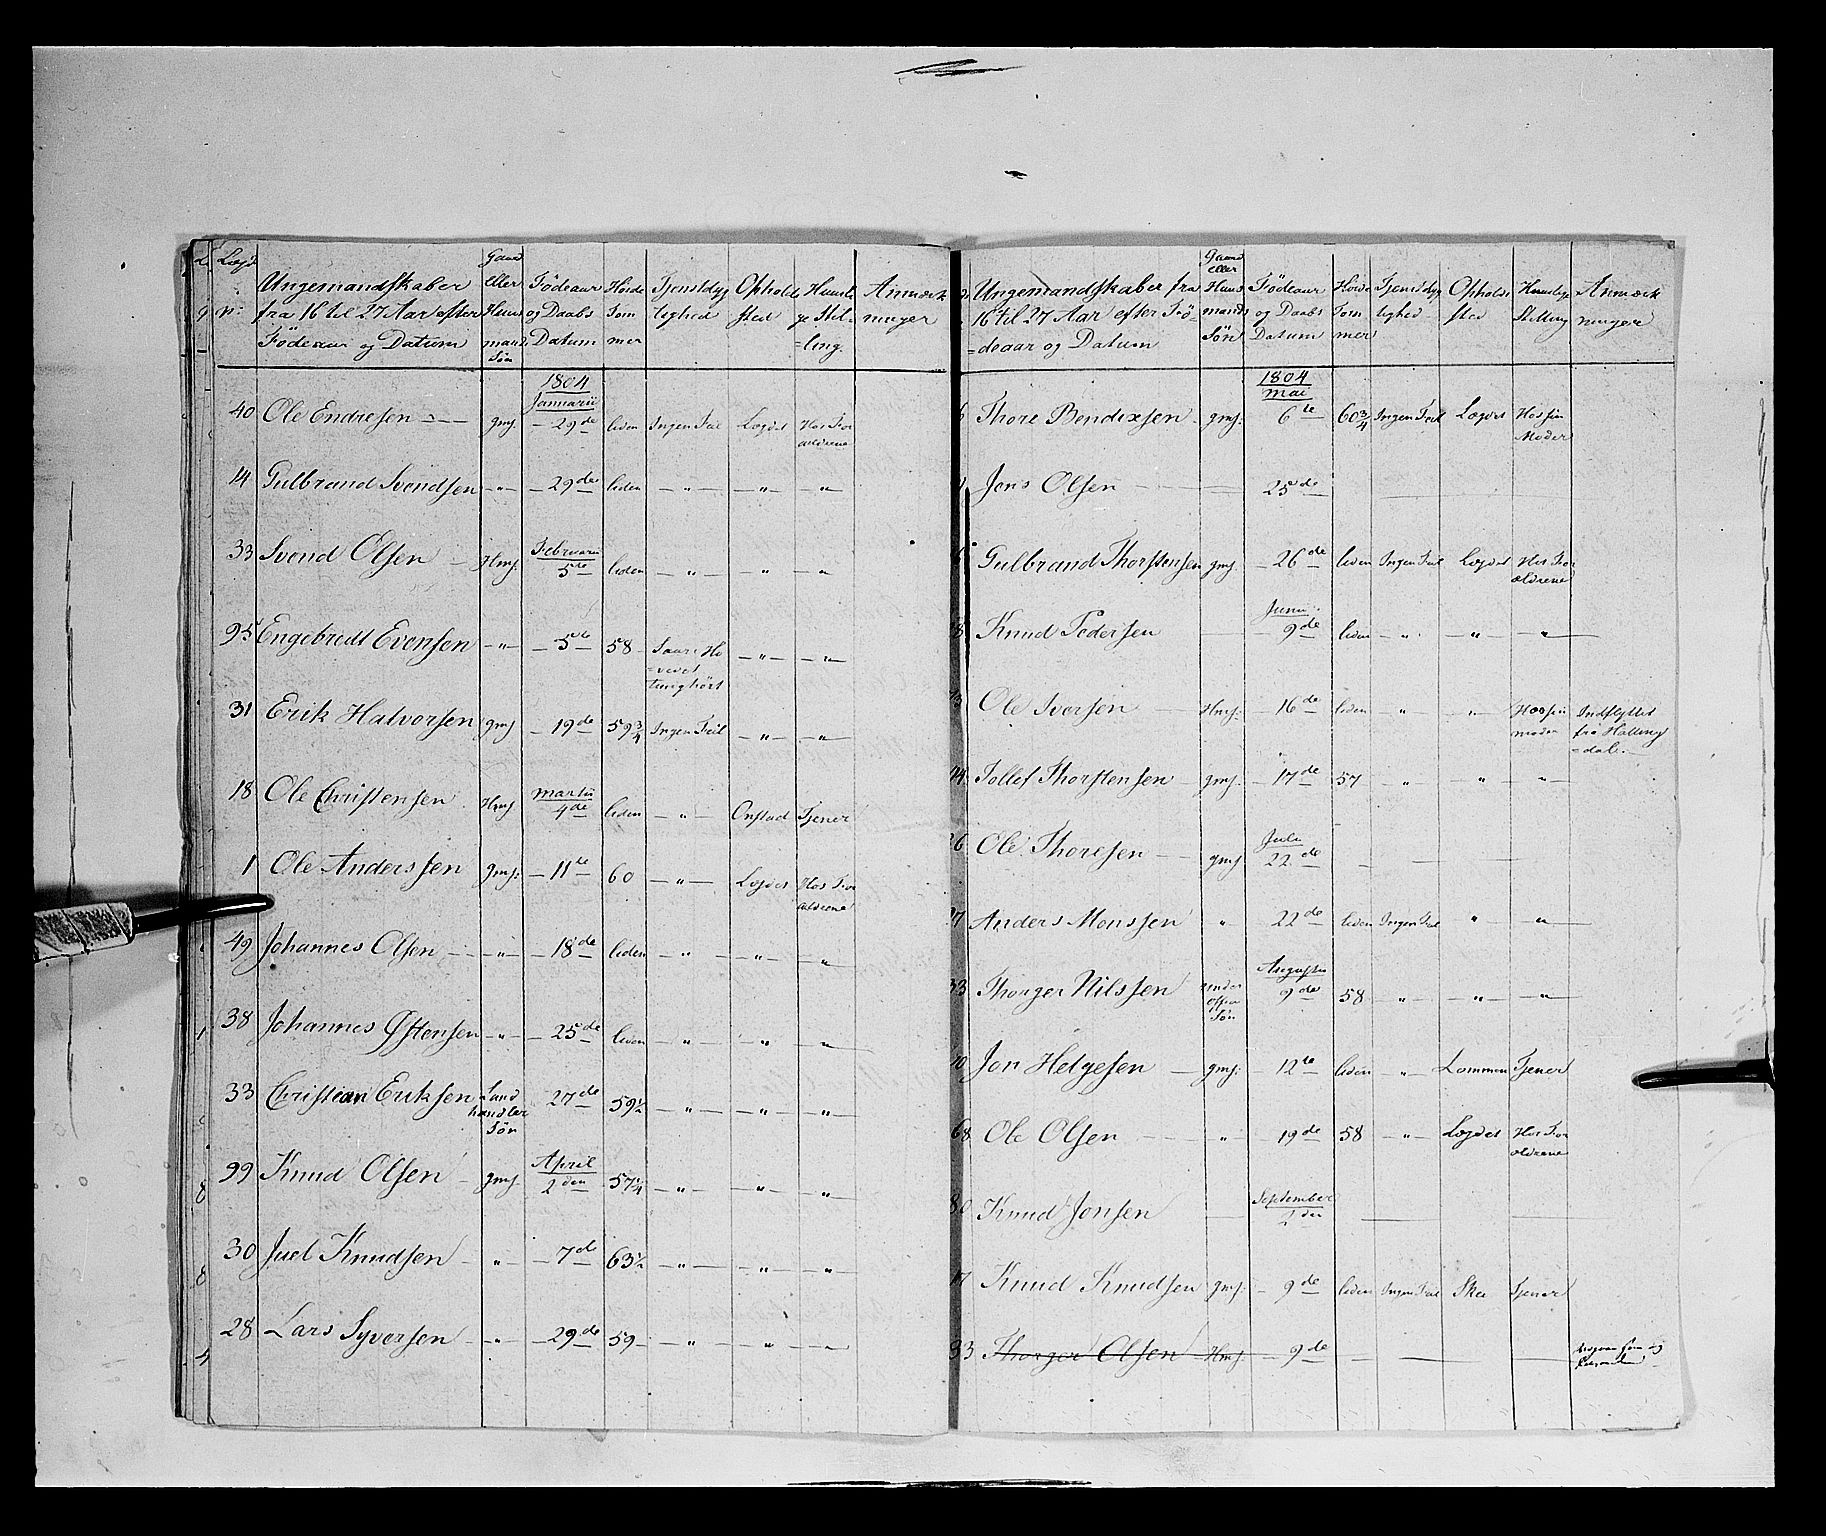 Lægd
n:
Ungemandskaber
fra 16 til 27 Aar efter
Födeaar og Datum
Gaard
eller
Huus
mands
Sön
Födeaar
og Daabs
Datum
Höide
Tom
mer
Tjenstdyg
tighed
Ophold
sted
Huusli
ge Stil-
=ling.
Anmærk
ninger
1804
Januarii
40 Ole Endresen - gmS. - 29de leden Ingen Feil Lægdet Hos For
ældrene
14 Gulbrand Svendsen - " - - 29de leden - " - - " - - " -
Februarii
33 Svend Olsen - HmS. 5te leden - " - - " - - " -
95 Engebredt Evensen - " - - 5te 58 - Saar i Ho - " - - " -
=vedet
tunghört
31 Erik Halvorsen gmS. - 19de 59 3/4 Ingen Feil - " - - " -
Martii
18 Ole Christensen HmS. 4de leden - " - Onstad Tjener
1 Ole Anderssen gmS. - 11te 60 - " - Lægdet Hos For
ældrene
49 Johannes Olsen - " - - 18de leden - " - - " - - " -
38 Johannes Østensen - " - - 25de leden - " - - " - - " -
33 Christian Eriksen Land
handler
Sön - 27de 59 1/2 - " - - " - - " -
April
99 Knud Olsen - gmS. 2den 57 1/4 - " - - " - - " -
30 Juel Knudsen - " - - 7de 63 1/2 - " - - " - - " -
28 Lars Syversen - " - - 29de 59 - " - - " - - " -
Ungemandskaber fra
16 til 27 Aar efter Fö-
=deaar og Datum
Gaard
eller
Huus
mands
Sön
Födeaar
og Daabs
Datum
Höide
Tom
mer
Tjenstdyg
tighed
Opholds
sted
Huuslige
Stilling
Anmærk
ninger
1804
Mai
Thore Bendixsen - gmS. 6te 60 3/4 Ingen Feil Lægdet Hos sin
Moder
Jens Olsen - 25de
Gulbrand Thorstensen gmS. - 26de leden Ingen Feil Lægdet Hos For
ældrene
Juni
Knud Pedersen - 9de leden - " - " - " -
Ole Iversen HmS. - 16de leden " " Hos sin Indflyttet
moder fra Halling
=dal.
44 Tollef Thorstensen gmS. - 17de 57 - " - " - " -
Juli
26 Ole Thoresen - gmS. 22de
Anders Monssen " - 22de leden Ingen Feil " "
Augusti
33 Thorger Nilssen under
officer
Sön 9de 58 - " - - " - - " -
Jon Helgesen gmS. - 12te leden - " - Lommen Tjener
68 Ole Olsen " - 19de 58 - " - Lægdet Hos For
ældrene
September
80 Knud Jonsen 2den
17 Knud Knudsen gmS. - 9de leden Ingen Feil Ske Tjener
33 Thorger Olsen HmS. - 9de